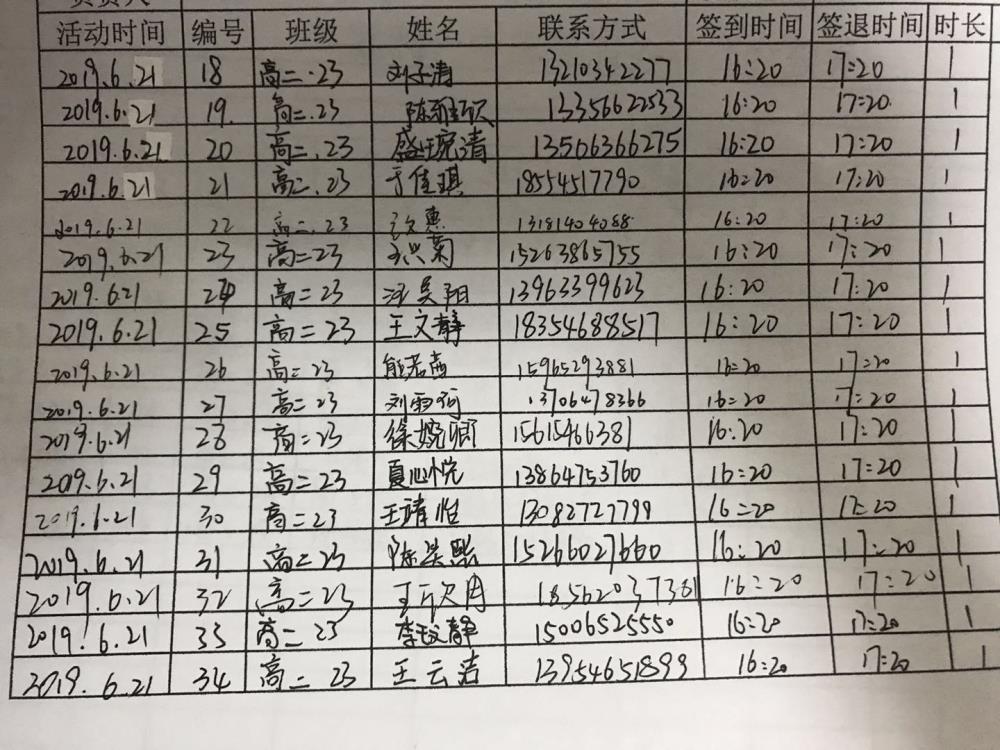 活动时间 编号 班级 姓名 联系方式 签到时间 签退时间 时长
2019.6.21 18 高二.23 刘子清 13210342277 16:20 17:20 1
2019.6.21 19. 高二.23 13356622533 16:20 17:20. 1
2019.6.21 20 高二.23 盛琬清 13506366275 16:20 17:20 1
2019.6.21 21 高二.23 于佳琪 18554517790 16:20 17:20 1
2019.6.21 22 高二.23 13181404088 16:20 17:20 1
2019.6.21 23 高二23 王兴菊 15263865755 16:20 17:20 1
2019.6.21 24 高二23 汪昊阳 13963399623 16:20 17:20 1
2019.6.21 25 高二23 王文静 18354688517 16:20 17:20 1
2019.6.21 26 高二23 熊若茜 15965293881 16:20 17:20 1
2019.6.21 27 高二23 刘雨珂 13706478366 16:20 17:20 1
2019.6.21 28 高二23 徐婉卿 15615466381 16:20 17:20 1
2019.6.21 29 高二23 夏心悦 13864753760 16:20 17:20 1
2019.6.21 30 高二23 王靖怡 13082727799 16:20 17:20 1
2019.6.21 31 高二23 15266027660 16:20 17:20 1
2019.6.21 32 高二23 18562037361 16:20 17:20 1
2019.6.21 33 高二23 李玟静 15006525550 16:20 17:20 1
2019.6.21 34 高二23 王云洁 13954651899 16:20 17:20 1